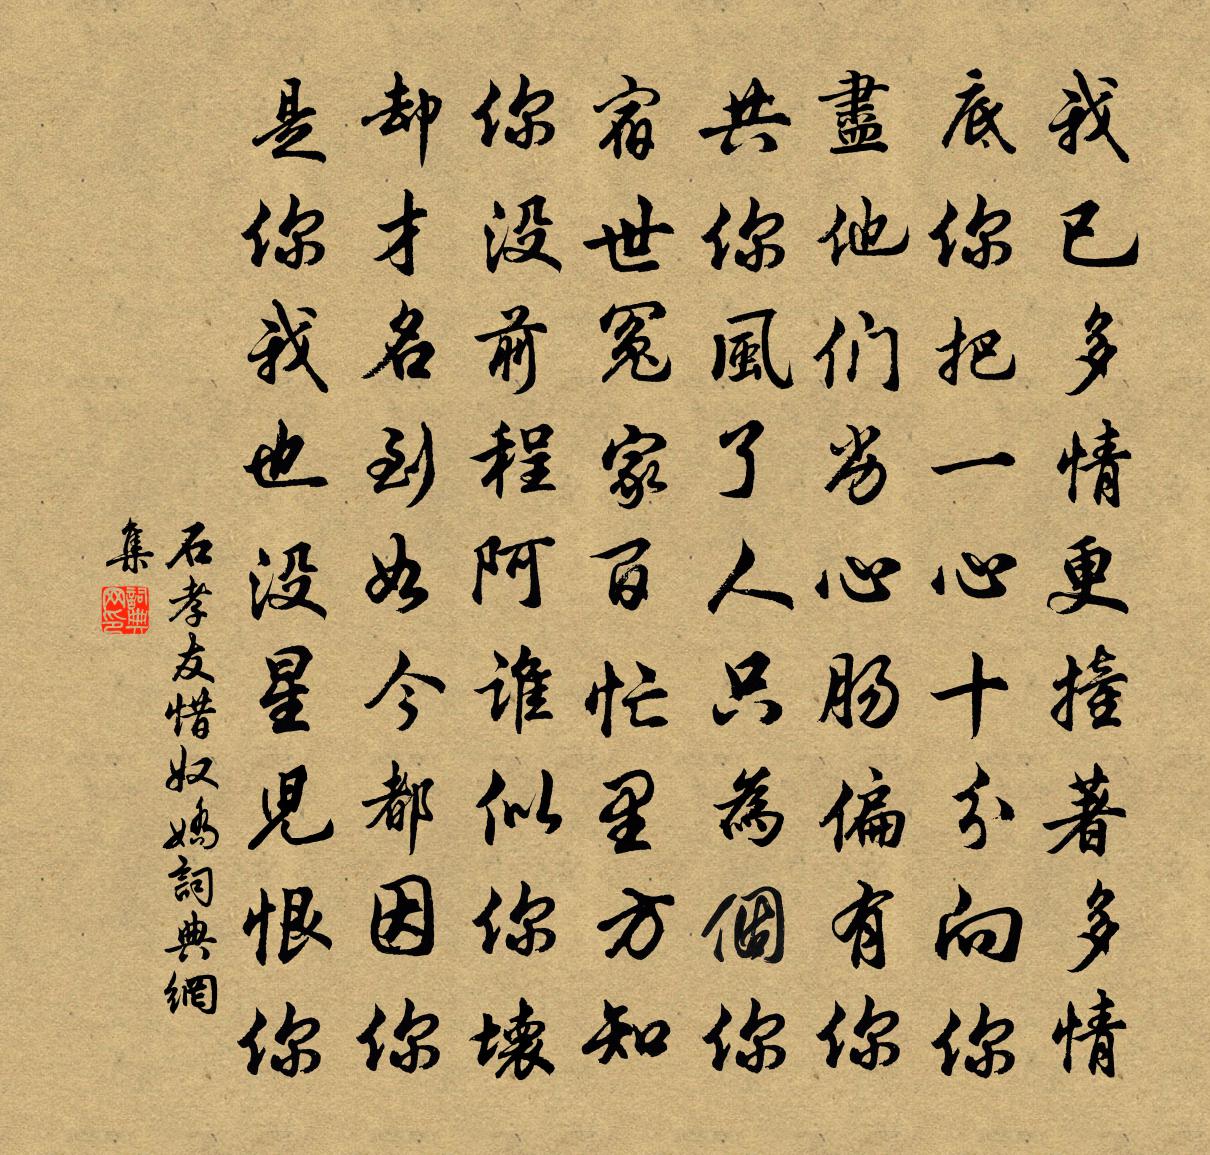 我已多情更撞著多情
底你把一心十分向你
盡他們劣心腸偏有你
共你風了人只為個你
宿世冤家百忙里方知
你没前程阿谁似你壞
却才名到如今都因你
是你我也没星児恨你
石孝友惜奴嬌詞典網
集
詞典
网印